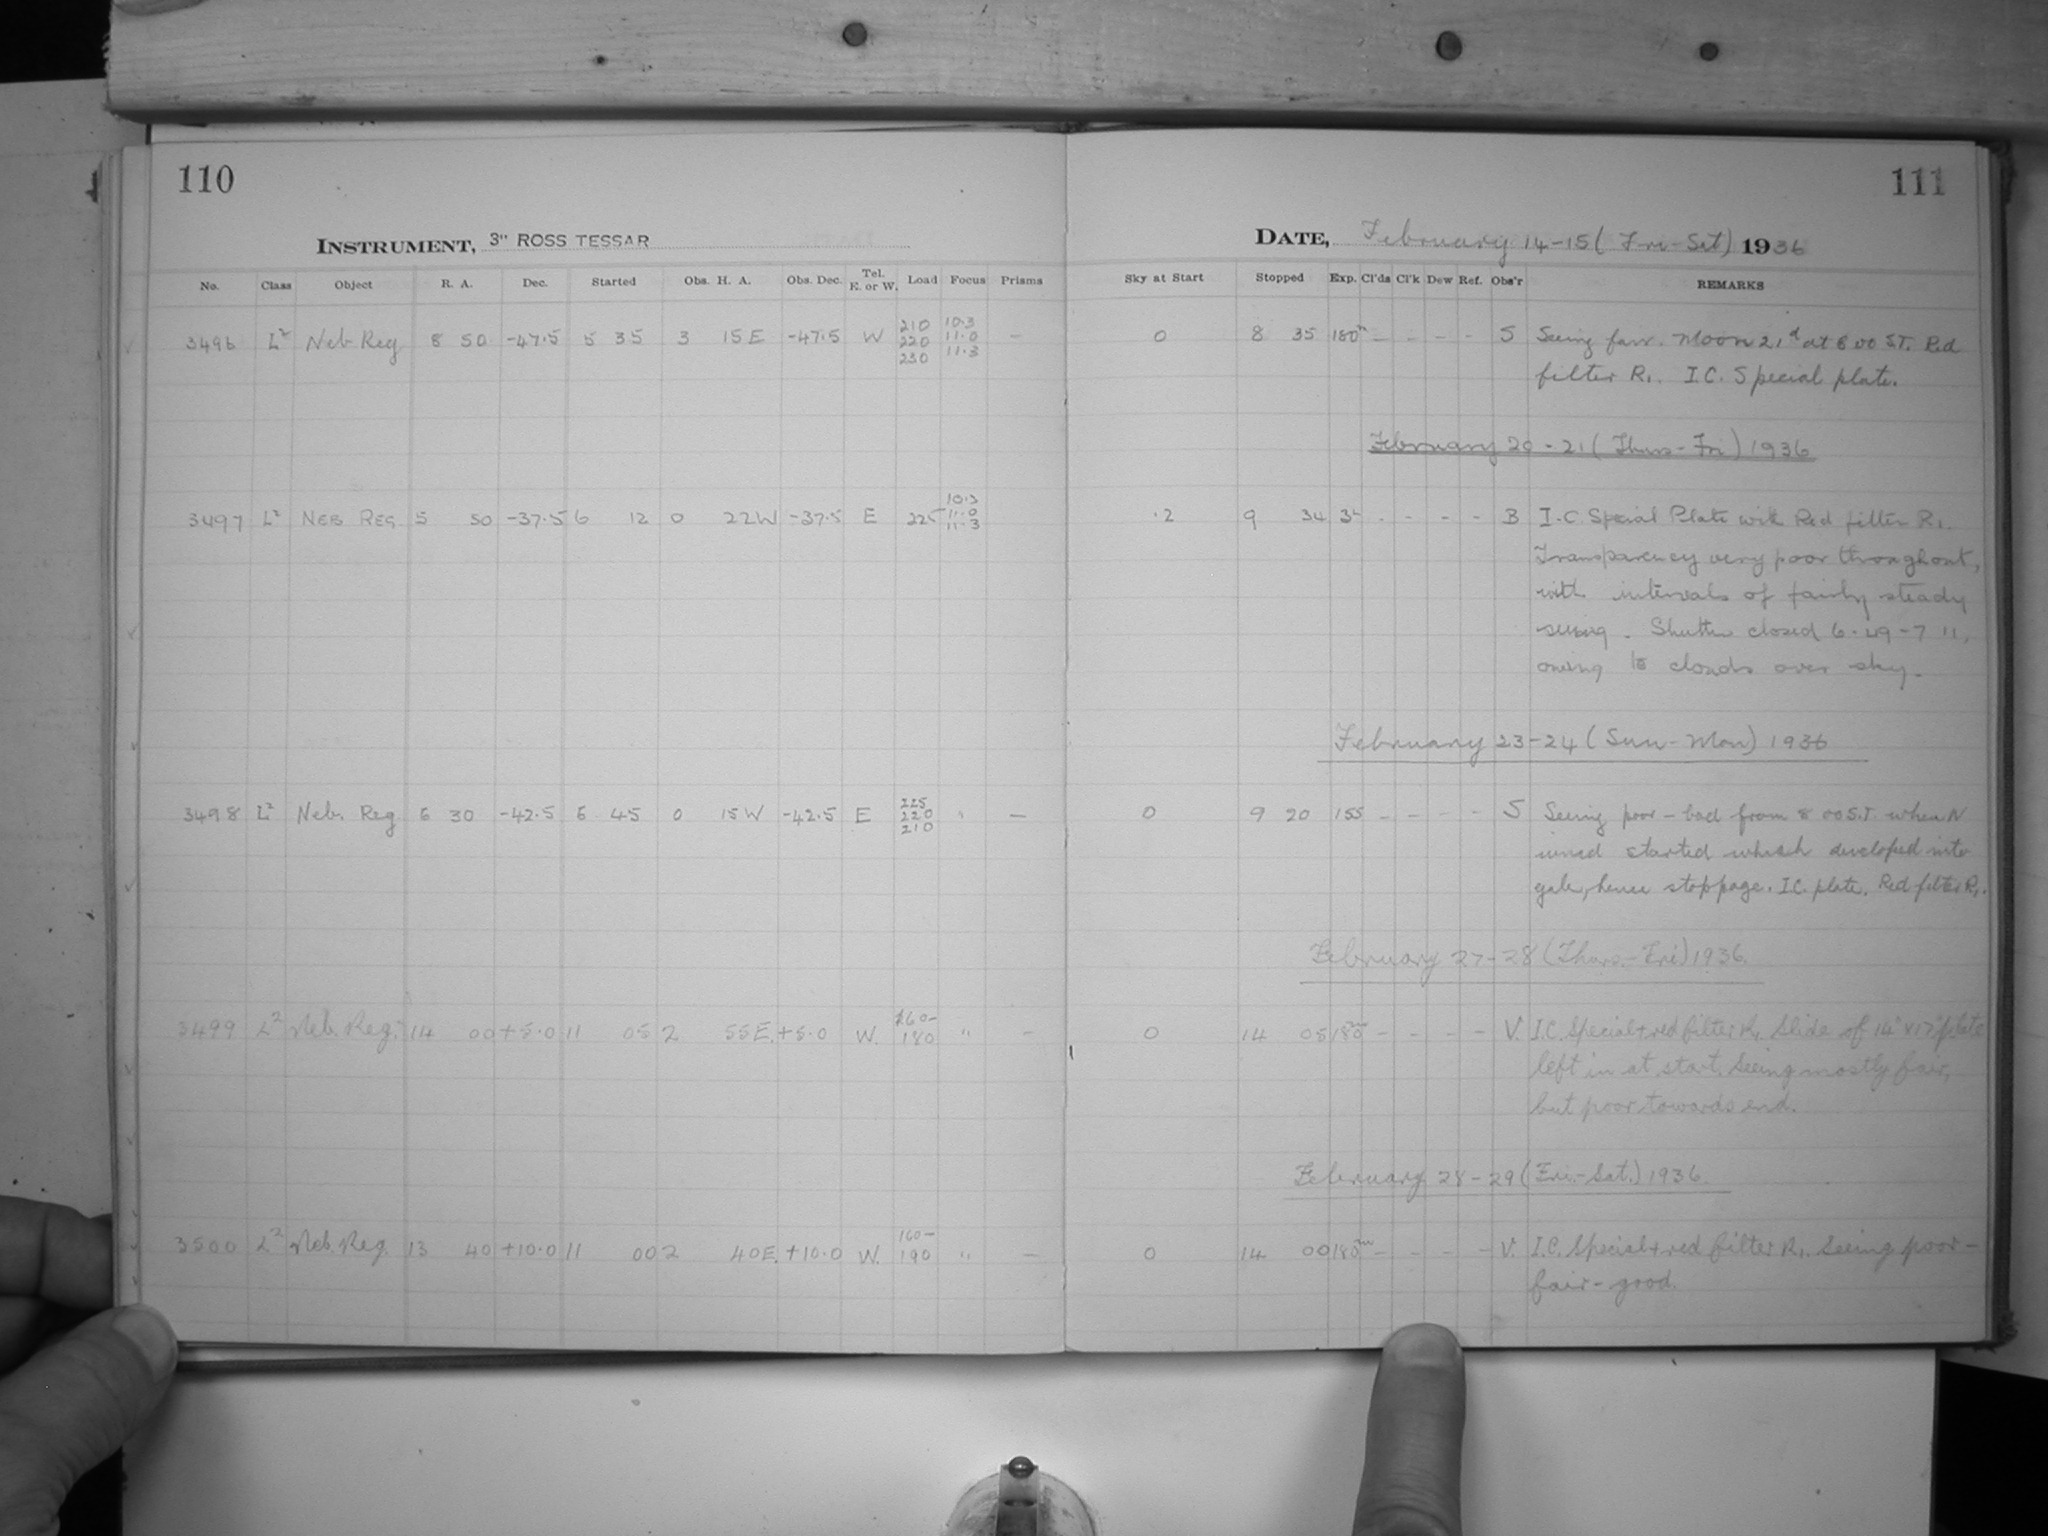 110
111
INSTRUMENT, 3" ROSS TESSAR
DATE, February 14-15 (Fri-Sat) 1936
No. Class Object R. A. Dec. Started Obs. H. A. Obs. Dec. Tel. E. or W. Load Focus Prisms Sky at Start Stopped Exp. Cl'ds Cl'k Dew Ref. Obs'r REMARKS
3496 L² Neb Reg 8 50 -47.5 5 35 3 15 E -47.5 W 210 220 230 10.3 11.0 11.3 — 0 8 35 180m - - - - S Seeing fair. Moon 21d at 8 00 S.T. Red
filter R1. I.C. Special plate.
February 20-21 (Thurs-Fri) 1936
3497 L² NEB REG 5 50 -37.5 6 12 0 22W -37.5 E 225 10.3 11.0 11.3 .2 9 34 3h - - - - B I.C. Special Plate with Red filter R1.
Transparency very poor throughout,
with intervals of fairly steady
seeing. Shutter closed 6.49-7 11,
owing to clouds over sky.
February 23-24 (Sun-Mon) 1936
3498 L² Neb. Reg 6 30 -42.5 6 45 0 15 W -42.5 E 225 220 210 " — 0 9 20 155 - - - - S Seeing poor - bad from 8 00 S.T. when N
wind started which developed into
gale, hence stoppage. I.C. plate. Red filter R1.
February 27-28 (Thurs.-Fri) 1936.
3499 L² Neb. Reg. 14 00 +5.0 11 05 2 55 E. +5.0 W. 160- 180 " — 0 14 05 180m - - - - V. I.C. Special + red filter R1. Slide of 14" x 17" plate
left in at start. Seeing mostly fair,
but poor towards end.
February 28-29 (Fri.-Sat.) 1936.
3500 L² Neb. Reg. 13 40 +10.0 11 00 2 40 E. +10.0 W. 160- 190 " — 0 14 00 180m - - - - V. I.C. Special + red filter R1. Seeing poor-
fair-good.